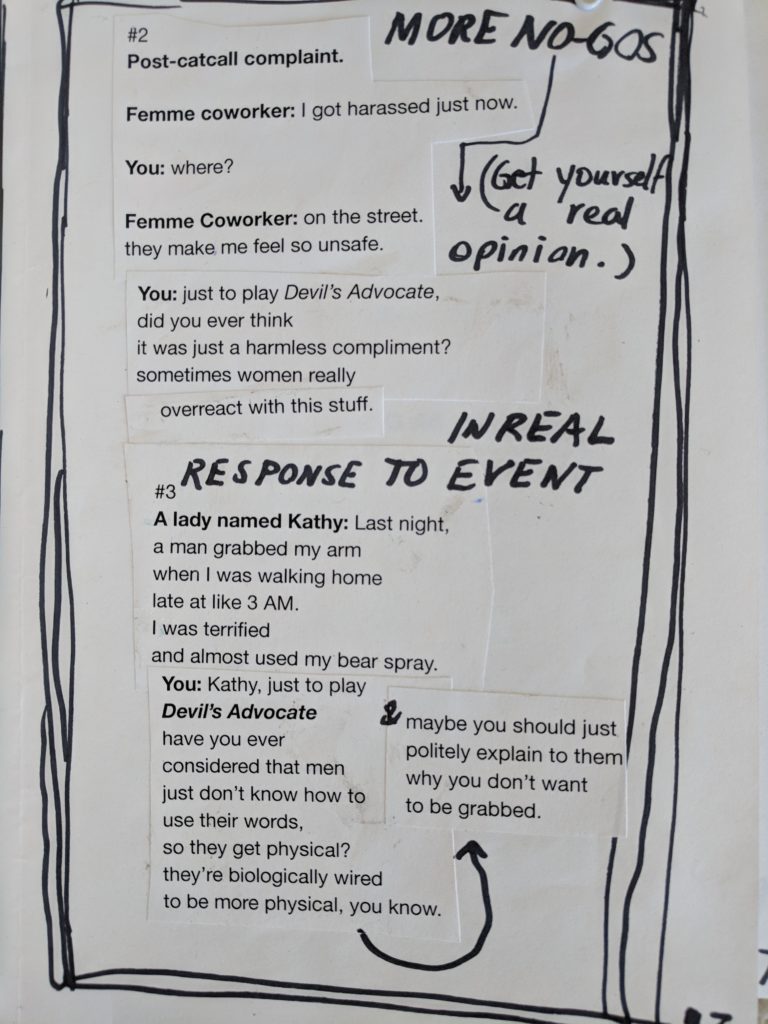 #2
MORE NO-GOS
Post-catcall complaint.
Femme coworker: I got harassed just now.
You: where?
(Get yourself
a real
opinion.)
Femme Coworker: on the street.
they make me feel so unsafe.
You: just to play Devil's Advocate,
did you ever think
it was just a harmless compliment?
sometimes women really
overreact with this stuff.
IN REAL
RESPONSE TO EVENT
#3
A lady named Kathy: Last night,
a man grabbed my arm
when I was walking home
late at like 3 AM.
I was terrified
and almost used my bear spray.
You: Kathy, just to play
Devil's Advocate
have you ever
considered that men
just don't know how to
use their words,
so they get physical?
they're biologically wired
to be more physical, you know.
& maybe you should just
politely explain to them
why you don't want
to be grabbed.